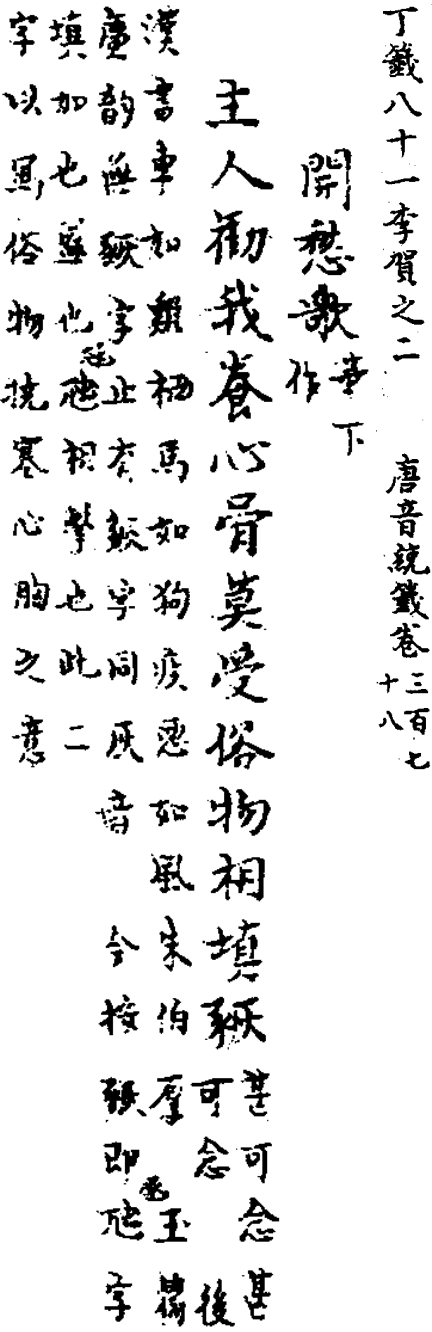 丁籤八十一李賀之二 唐音統籤卷三百七十八
開愁歌 華下作
主人勸我養心骨莫受俗物相填 甚可念甚可念 後
漢書車如雞栖馬如狗疾惡如風朱伯厚 玉篇
廣韵無 字止有 字同灰音 今按 即 字
填加也塞也 相擊也此二
字以寫俗物撓塞心胸之意